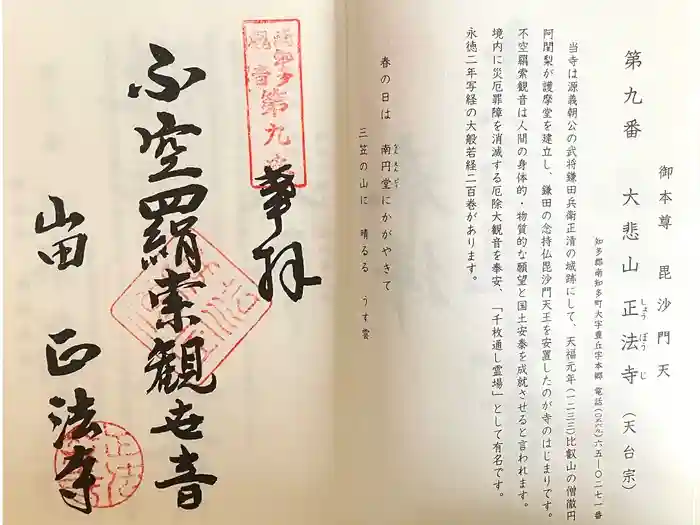 御本尊 毘沙門天
第九番 大悲山正法寺(天台宗)
しょうぼうじ
知多郡南知多町大字豊丘字本郷 電話(〇五六九)六五―〇二七一番
当寺は源義朝公の武将鎌田兵衛正清の城跡にして、天福元年(一二三三)比叡山の僧徹円
阿闍梨が護摩堂を建立し、鎌田の念持仏毘沙門天王を安置したのが寺のはじまりです。
不空羂索観音は人間の身体的・物質的な願望と国土安泰を成就させると言われます。
境内に災厄罪障を消滅する厄除大観音を奉安、「千枚通し霊場」として有名です。
永徳二年写経の大般若経二百巻があります。
春の日は 南円堂にかがやきて
三笠の山に 晴るる うす雲
第九
奉拝
不空羂索観世音
山田 正法寺